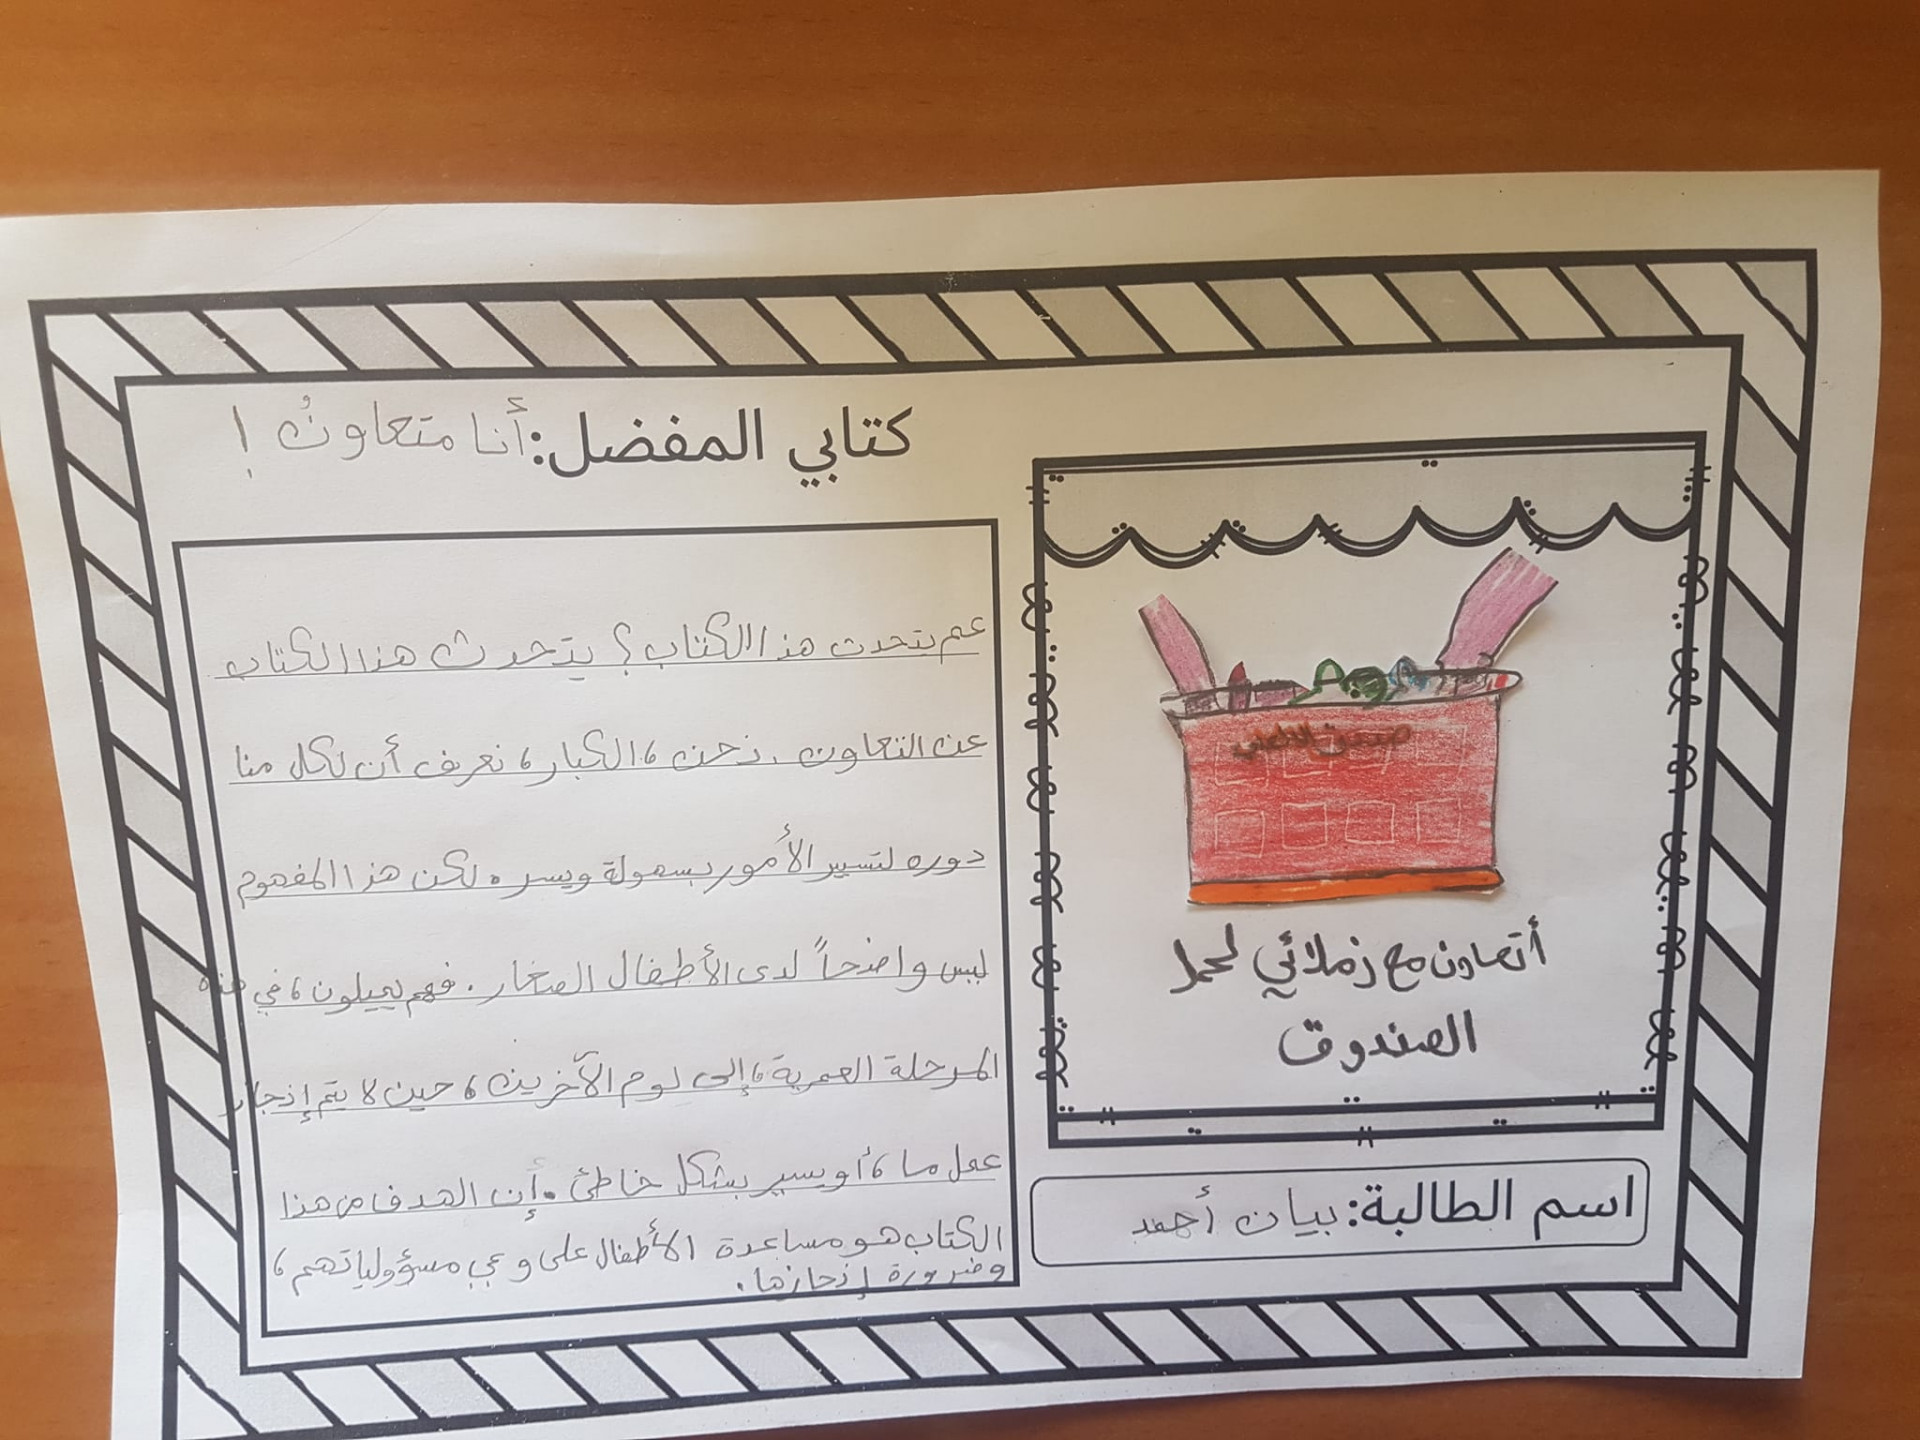 كتابي المفضل: أنا متعاونٌ !
عم يتحدث هذا الكتاب؟ يتحدث هذا الكتاب
عن التعاون. نحن، الكبار، نعرف أن لكل منا
دوره لتسيير الأمور بسهولة ويسر. لكن هذا المفهوم
ليس واضحاً لدى الأطفال الصغار. فهم يميلون، في هذه
المرحلة العمرية، إلى لوم الآخرين، حين لا يتم إنجاز
عمل ما، أو يسير بشكل خاطئ. إن الهدف من هذا
الكتاب هو مساعدة الأطفال على وعي مسؤولياتهم،
وضرورة إنجازها.
صندوق
أتعاون مع زملائي لحمل
الصندوق
اسم الطالبة: بيان أحمد